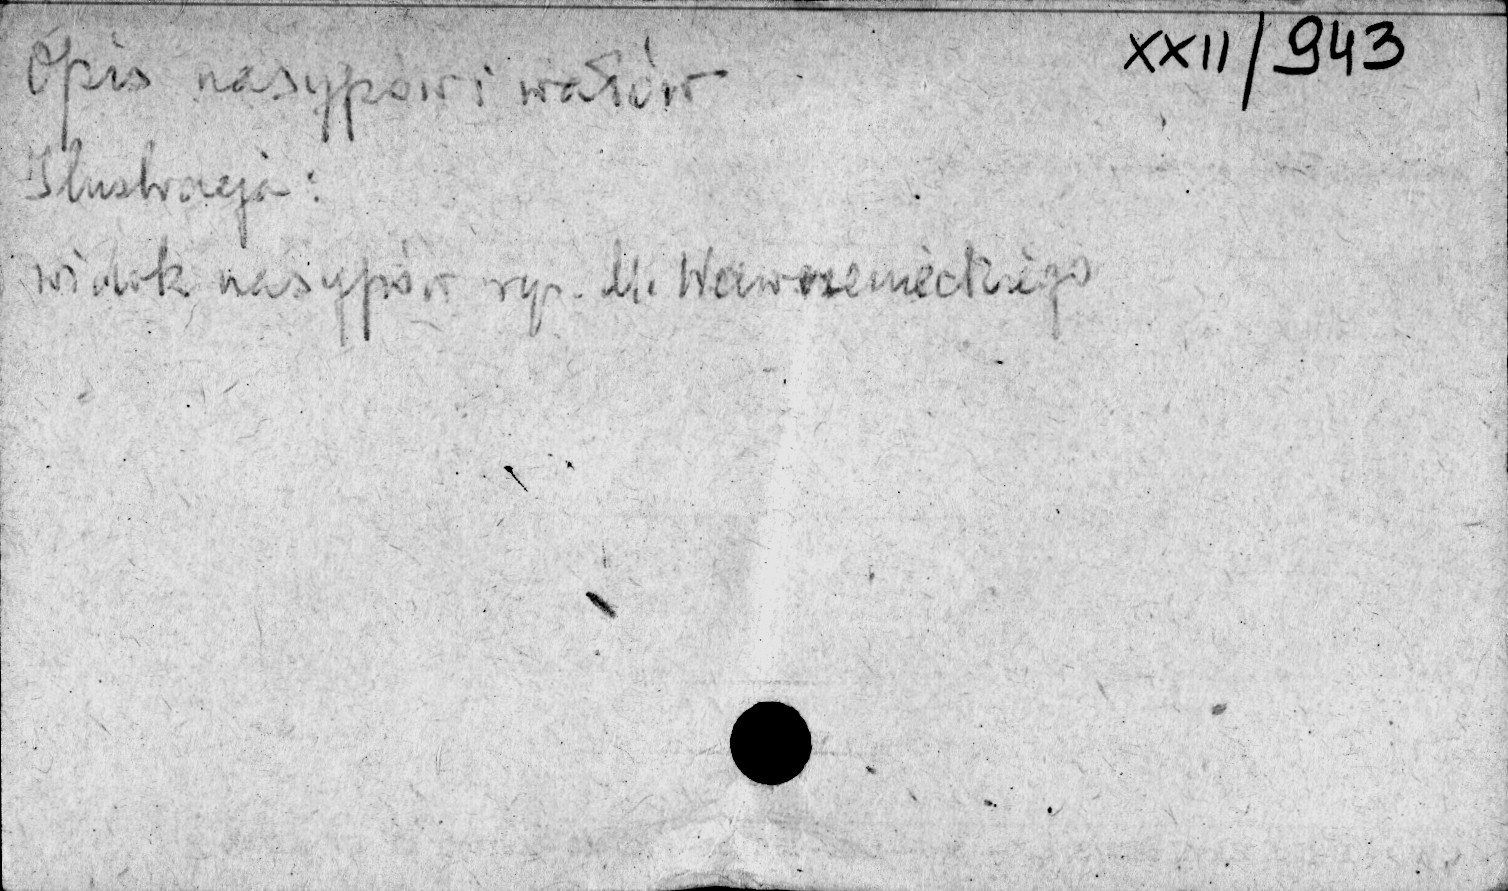 XXII/943
Opis nasypów i wałów
Ilustracja:
widok nasypów rys. M. Wawrzenieckiego